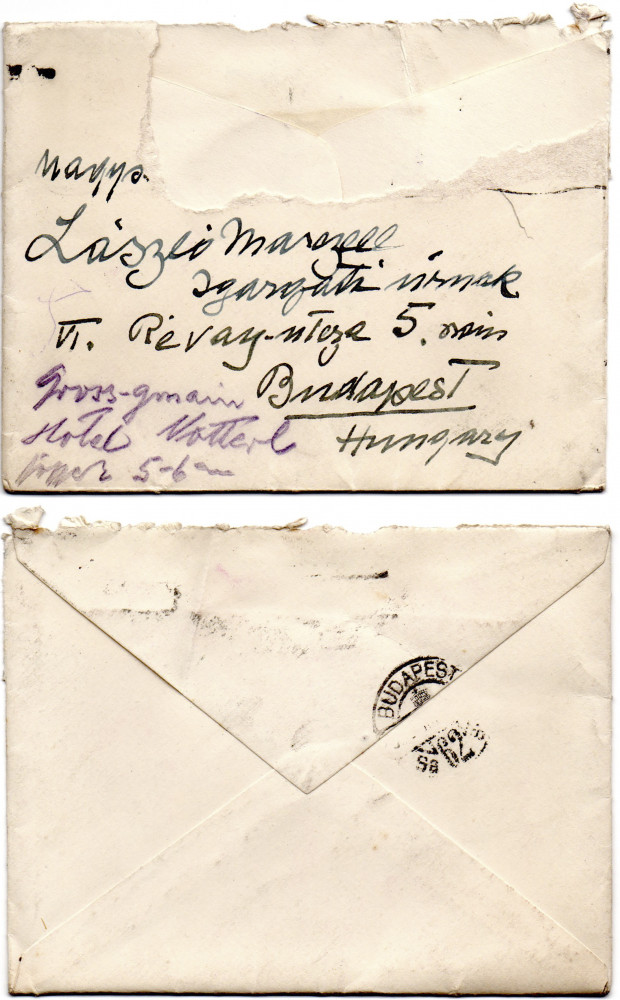 Nagys.
László Marczell
Igazgató úrnak
VI. Révay-utcza 5. szám
Budapest
Hungary
Gross-gmain
Hotel
5-6
BUDAPEST